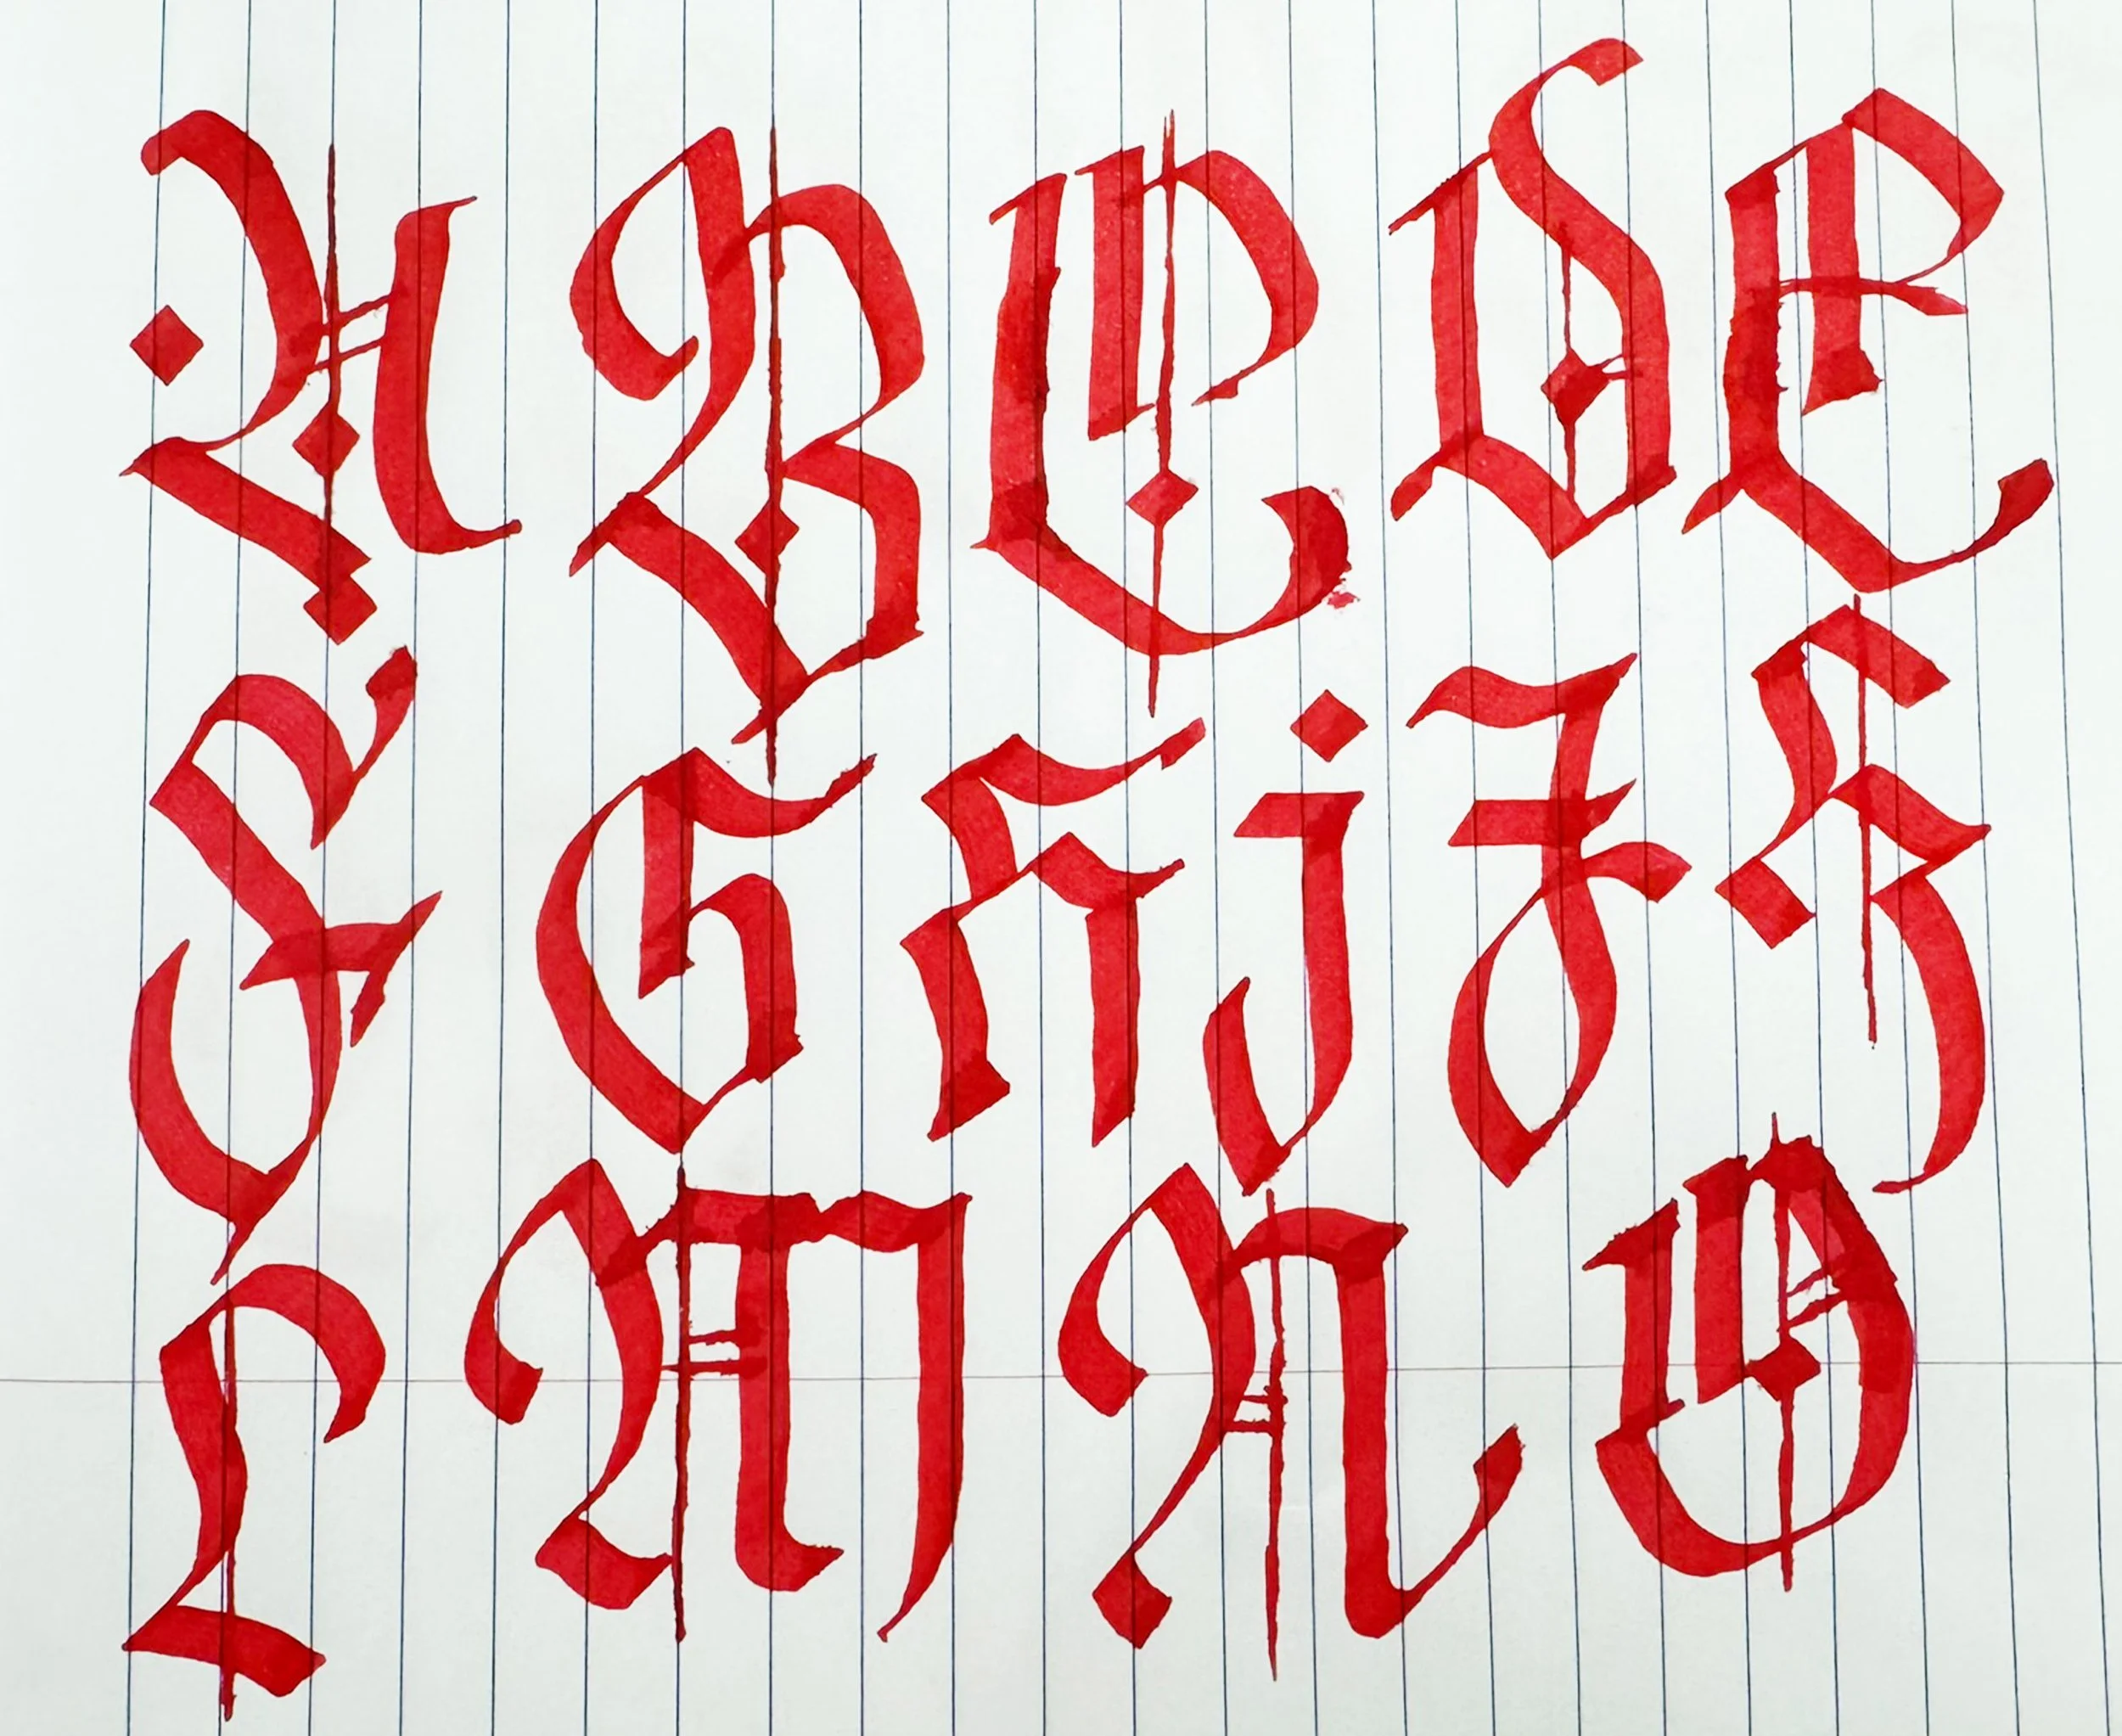 A B C D E
F G H I J K
L M N O